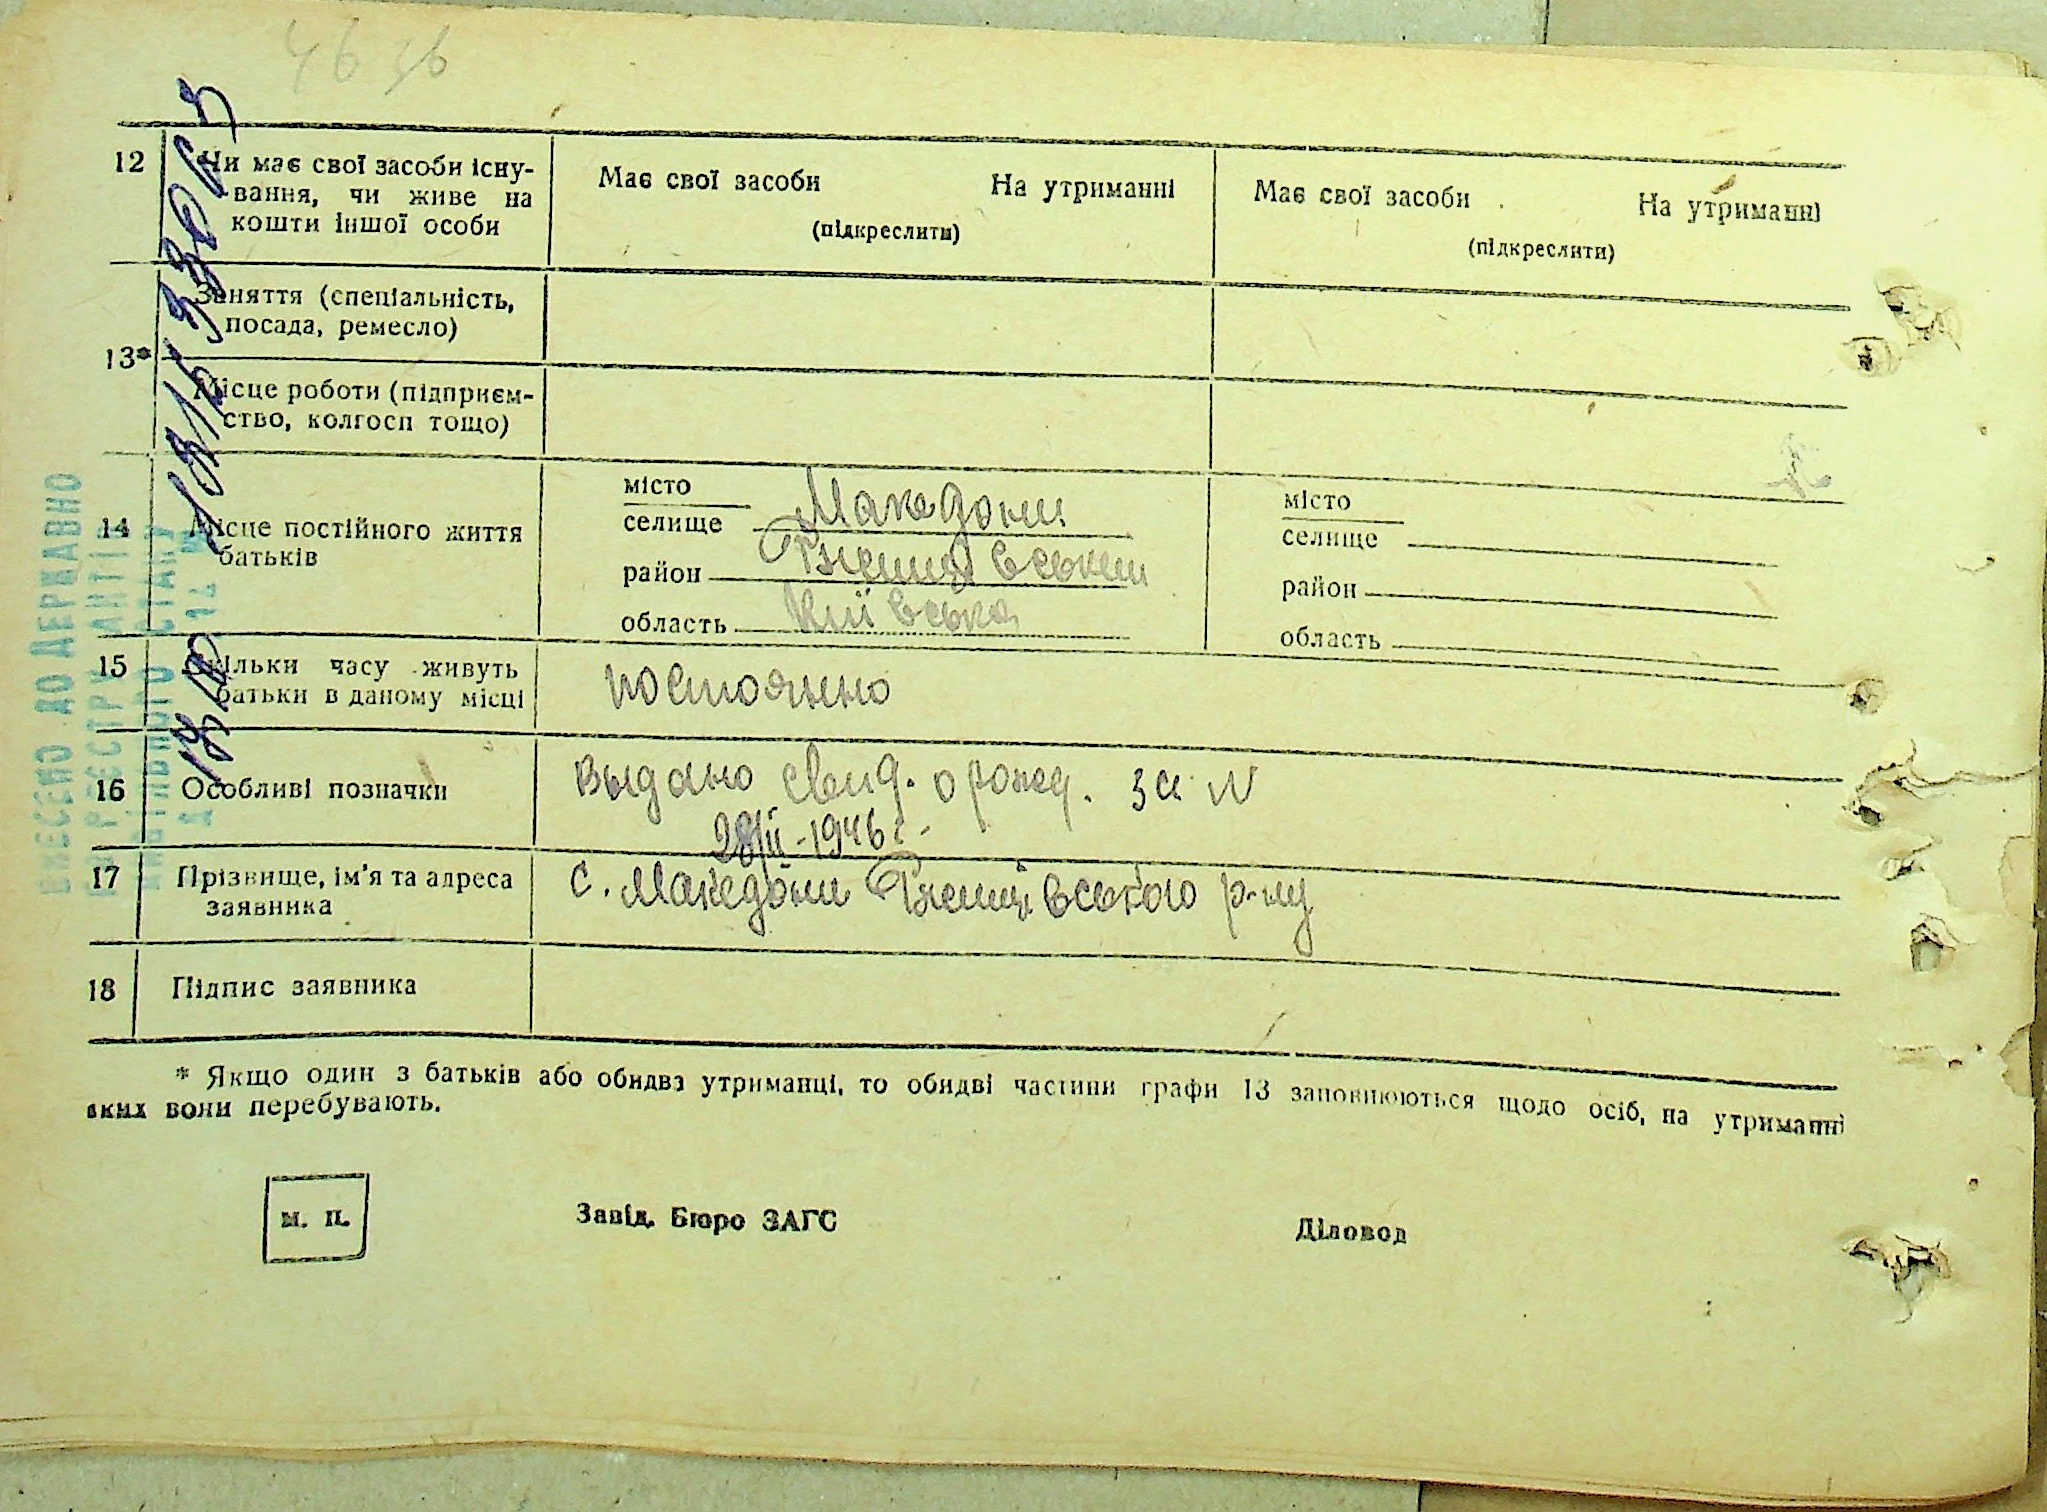 12
Чи має свої засоби існу-
вання, чи живе на
кошти іншої особи
Має свої засоби На утриманні
(підкреслити)
Має свої засоби На утриманні
(підкреслити)
13*
Заняття (спеціальність,
посада, ремесло)
Місце роботи (підприєм-
ство, колгосп тощо)
14
Місце постійного життя
батьків
місто
селище Македони
район Ржищівський
область Київська
місто
селище
район
область
15
Скільки часу живуть
батьки в даному місці
постоянно
16
Особливі позначки
Выдано свид. о рожд. за N
28/III-1946 г.
17
Прізвище, ім'я та адреса
заявника
с. Македони Ржищівського р-ну
18
Підпис заявника
* Якщо один з батьків або обидва утриманці, то обидві частини графи 13 заповнюються щодо осіб, на утриманні
яких вони перебувають.
м. п.
Завід. Бюро ЗАГС
Діловод
ВНЕСЕНО ДО ДЕРЖАВНО